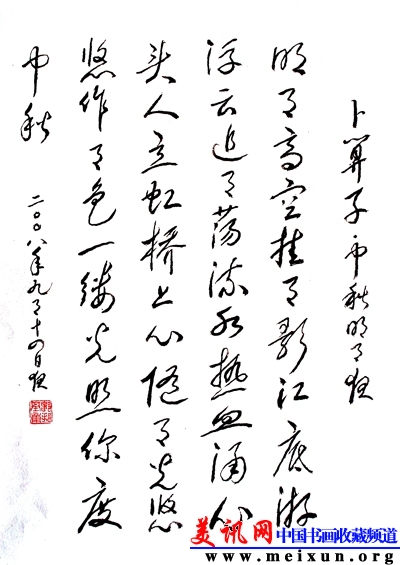 卜算子·中秋明月夜
明月高空挂月影江底游
浮云追月荡流水热血涌心
头人立虹桥上心随月光悠
愿作月色一缕光照你度
中秋
二〇〇八年九月十四日夜
美讯网 中国书画收藏频道
www.meixun.org